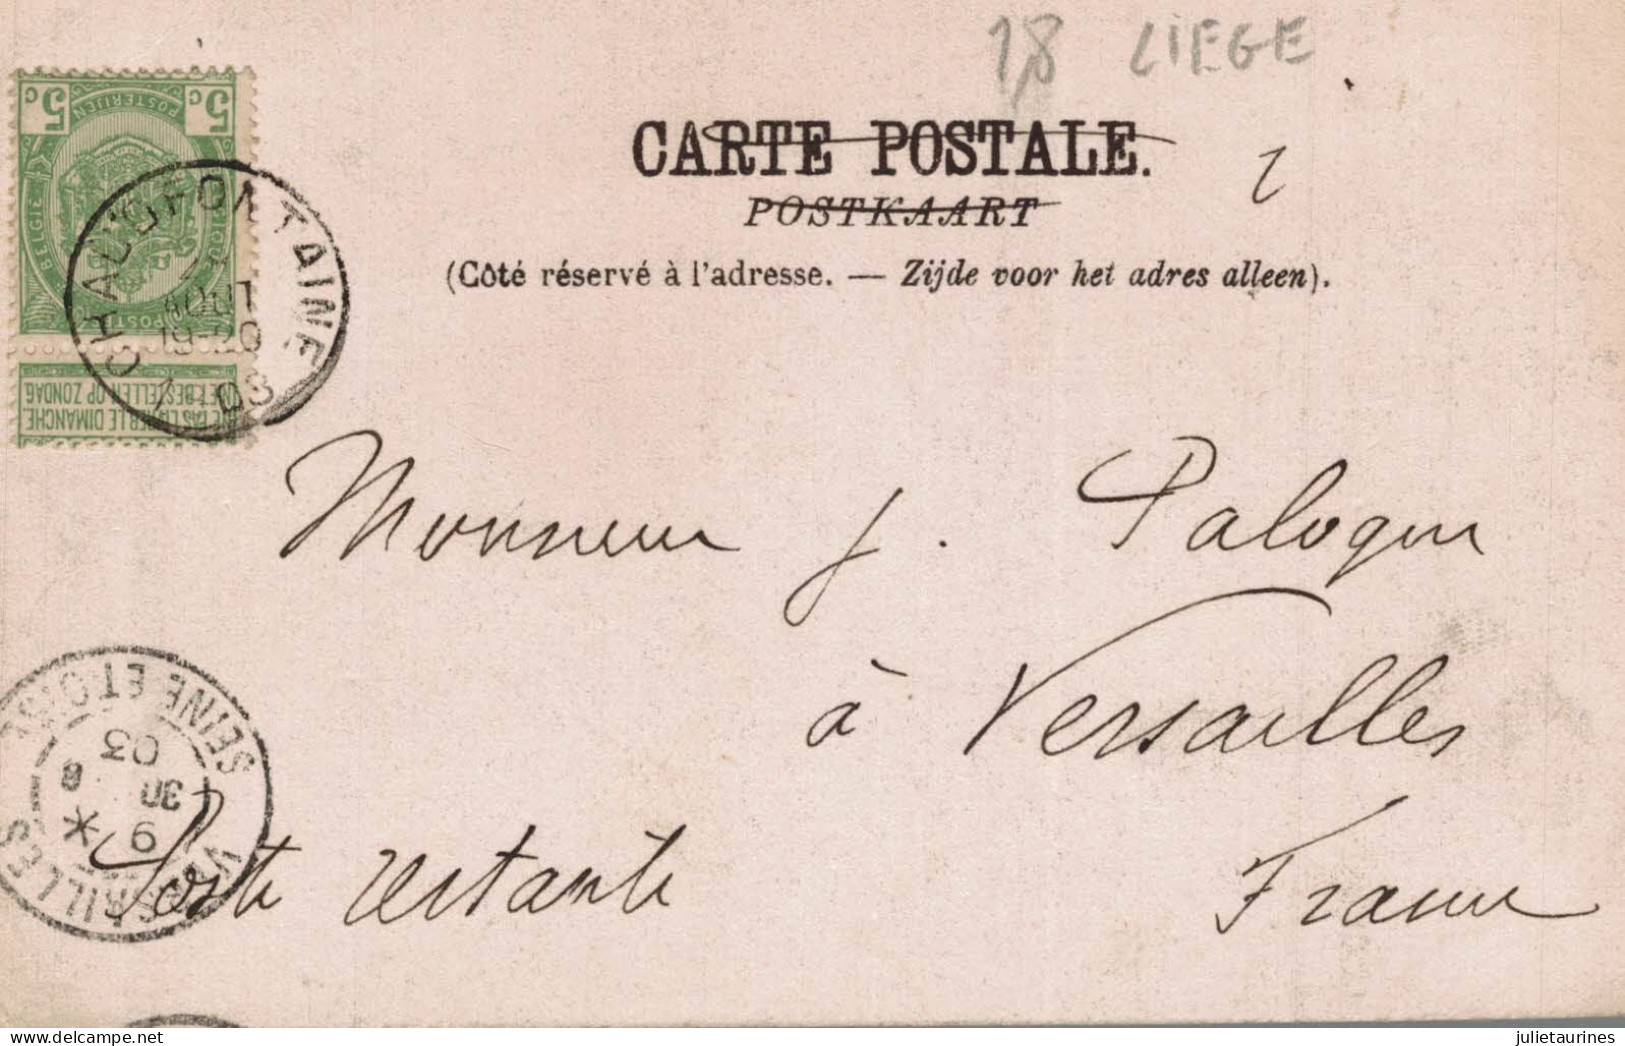 18 LIEGE
CARTE POSTALE.
POSTKAART
(Côté réservé à l'adresse. — Zijde voor het adres alleen).
5c 5c
POSTERIJEN
BELGIE BELGIQUE
POSTES
NE PAS LIVRER LE DIMANCHE.
NIET BESTELLEN OP ZONDAG
CHAUDFONTAINE
AOUT
19-20
03
Monsieur J. Palogue
à Versailles
Poste restante France
VERSAILLES
SEINE ET OISE
9
30 8
03
julietaurines